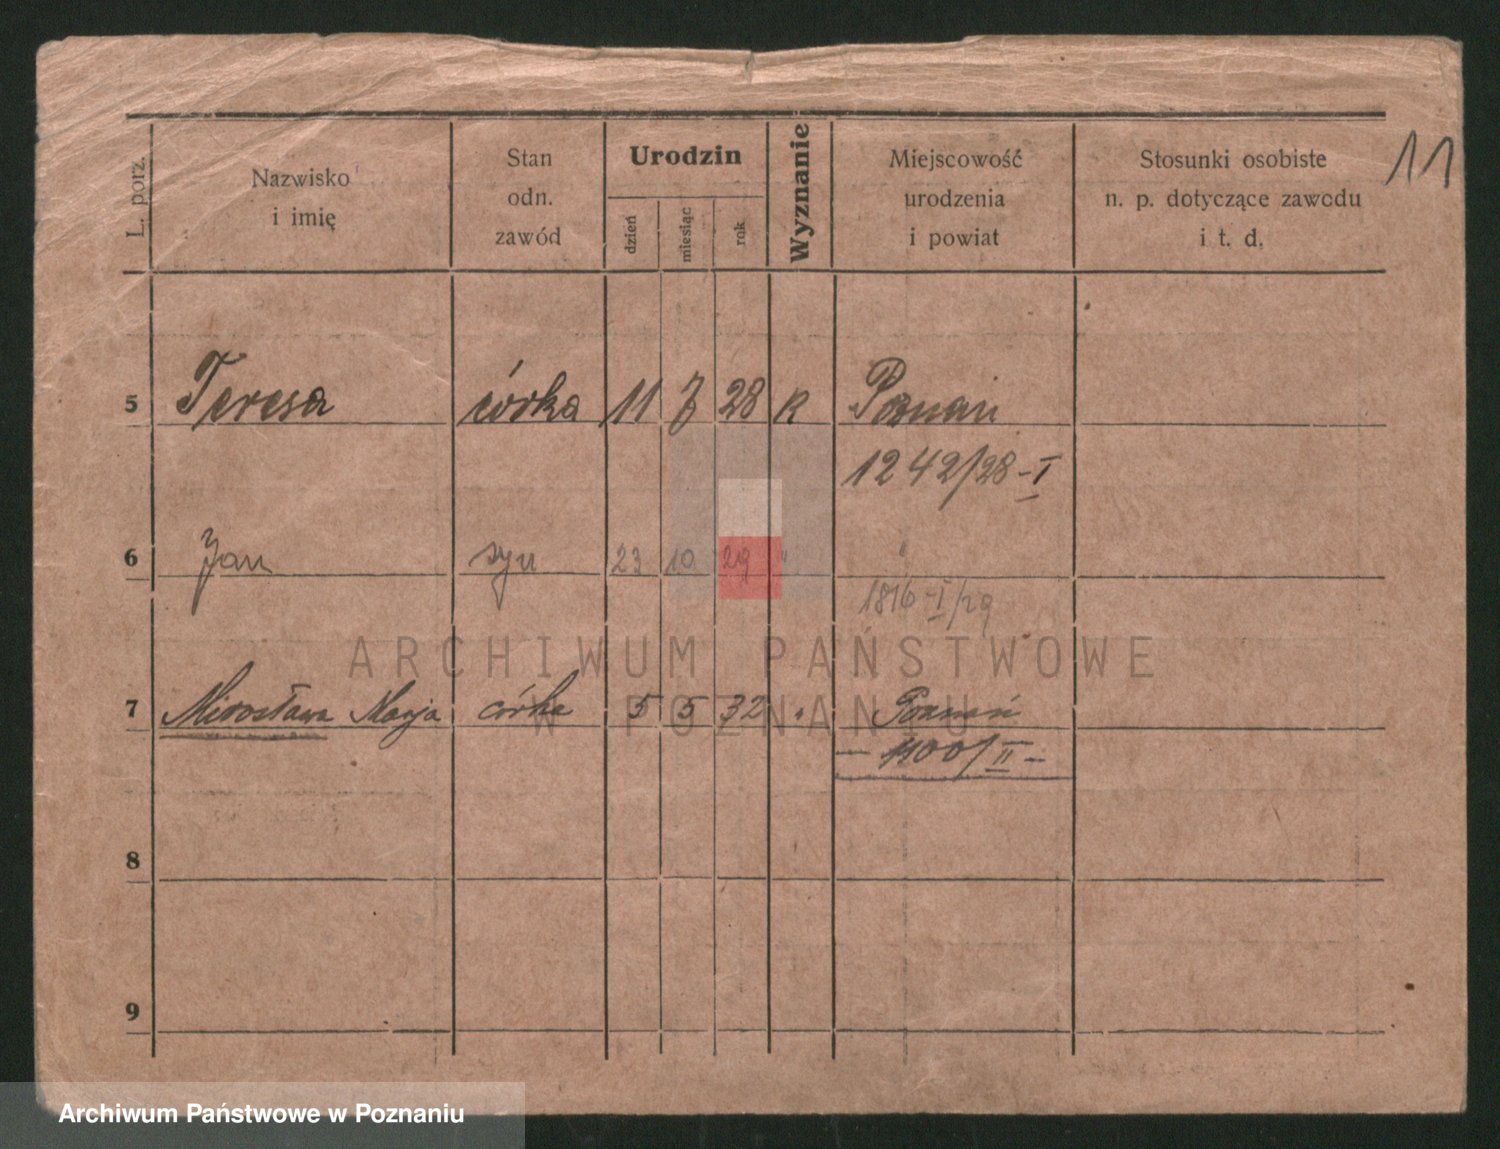 L. porz.
Nazwisko
i imię
Stan
odn.
zawód
Urodzin
dzień
miesiąc
rok
Wyznanie
Miejscowość
urodzenia
i powiat
Stosunki osobiste
n. p. dotyczące zawodu
i t. d.
11
5 Teresa córka 11 7 28 R Poznań
1242/28-I
6 Jan syn 23 10 29 " "
1816-I/29
ARCHIWUM PAŃSTWOWE
W POZNANIU
7 Mirosława Marja córka 5 5 32 " Poznań
- 1100/II -
8
9
Archiwum Państwowe w Poznaniu